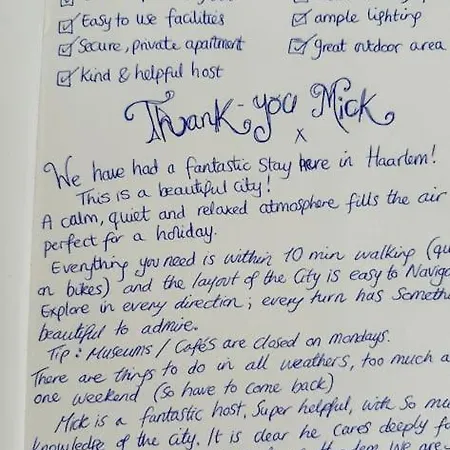 Easy to use facilities
ample lighting
Secure, private apartment
great outdoor area
kind & helpful host
Thank-you Mick
x
We have had a fantastic stay here in Haarlem!
This is a beautiful city!
A calm, quiet and relaxed atmosphere fills the air
perfect for a holiday.
Everything you need is within 10 min walking (qu
on bikes) and the layout of the City is easy to Naviga
Explore in every direction; every turn has Someth
beautiful to admire.
Tip: Museums / Cafés are closed on mondays.
There are things to do in all weathers, too much a
one weekend (so have to come back)
Mick is a fantastic host, Super helpful, with So mu
knowledge of the city. It is clear he cares deeply fo
We are